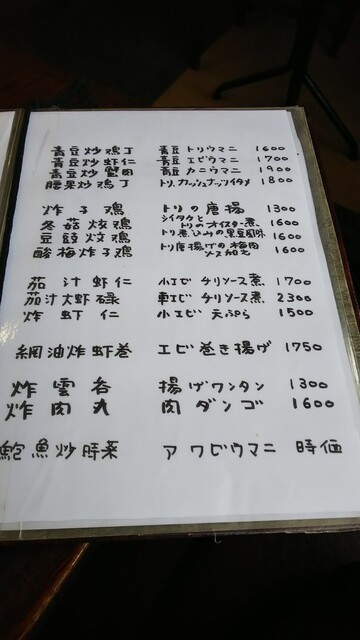 青豆炒鶏丁 青豆トリウマニ 1600
青豆炒虾仁 青豆エビウマニ 1700
青豆炒蟹肉 青豆カニウマニ 1900
腰果炒鶏丁 トリ、カッシュナッツイタメ 1800
炸子鶏 トリの唐揚 1300
冬菇炆鶏 シイタケとトリのオイスター煮、 1600
豆豉炆鶏 トリ煮込みの黒豆風味 1600
酸梅炸子鶏 トリ唐揚げの梅肉ソース加え 1600
茄汁虾仁 小エビチリソース煮 1700
茄汁大虾碌 車エビチリソース煮 2300
炸虾仁 小エビ天ぷら 1500
網油炸虾巻 エビ巻き揚げ 1750
炸雲呑 揚げワンタン 1300
炸肉丸 肉ダンゴ 1600
鮑魚炒時菜 アワビウマニ 時価